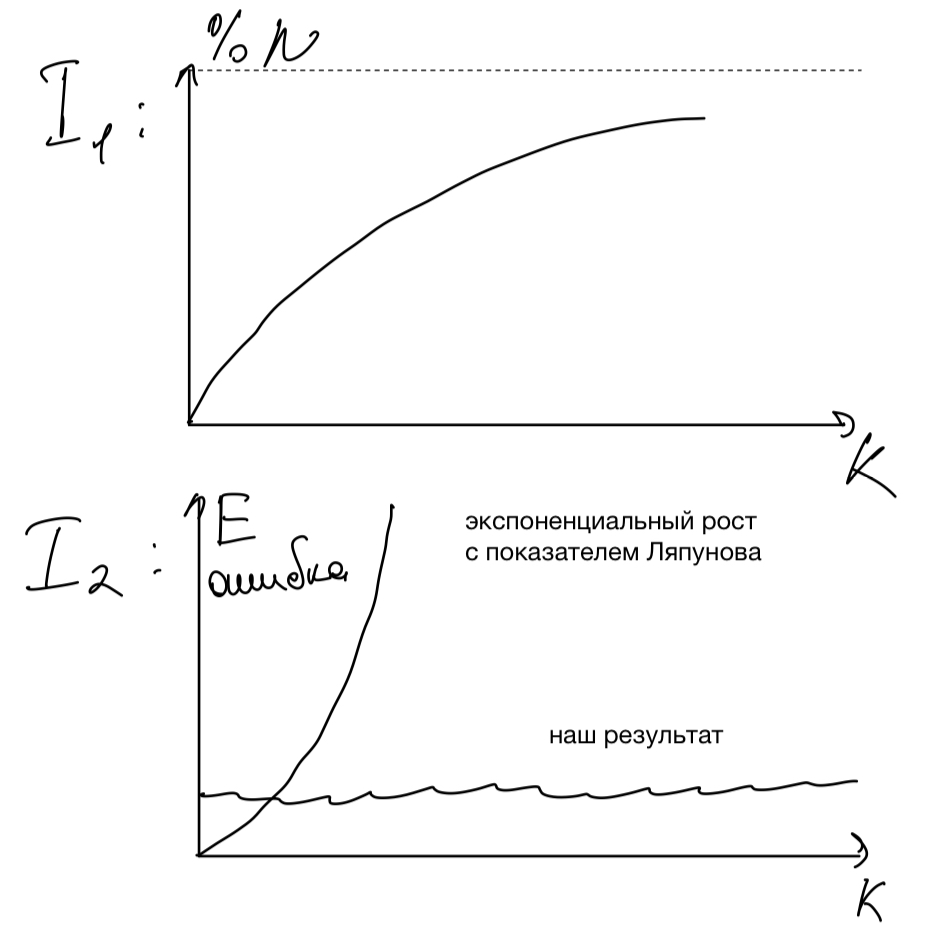 % N
I₁ :
K
I₂ :
E
ошибка
экспоненциальный рост
с показателем Ляпунова
наш результат
K